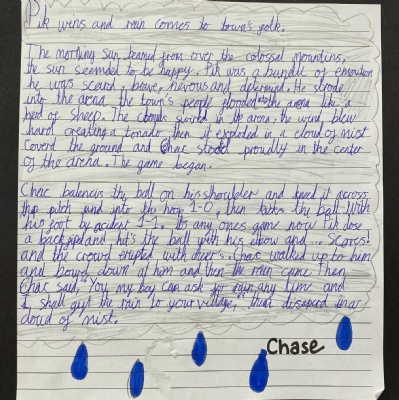 Pik wins and rain comes to town's folk.
The morning sun beamed from over the colossal mountins,
the sun seemded to be happy. Pik was a bundle of
he was scared, brave, nervous and determind. He strode
into the arena, the town's people flooded the arena like a
herd of sheep. The clouds swirled in the arena, the wind, blew
hard creating a tornado, then it exploded in a cloud of mist
Coverd the ground and Chac stood proudly in the center
of the arena. The game began.
Chac balencius the ball on his shoulder and kned it across
the pitch and into the hoop 1-0, then kicks the ball with
his foot by acident 1-1. Its any ones game now Pik dose
a backflip and hit's the ball with his elbow and ... Scores!
and the crowd erupted with cheer's. Chac walked up to him
and bowed down at him and then the rain came. Then
Chac said, "You my boy can ask for rain any time and
I shall give the rain to your village," then disapeard in a
cloud of mist.
Chase